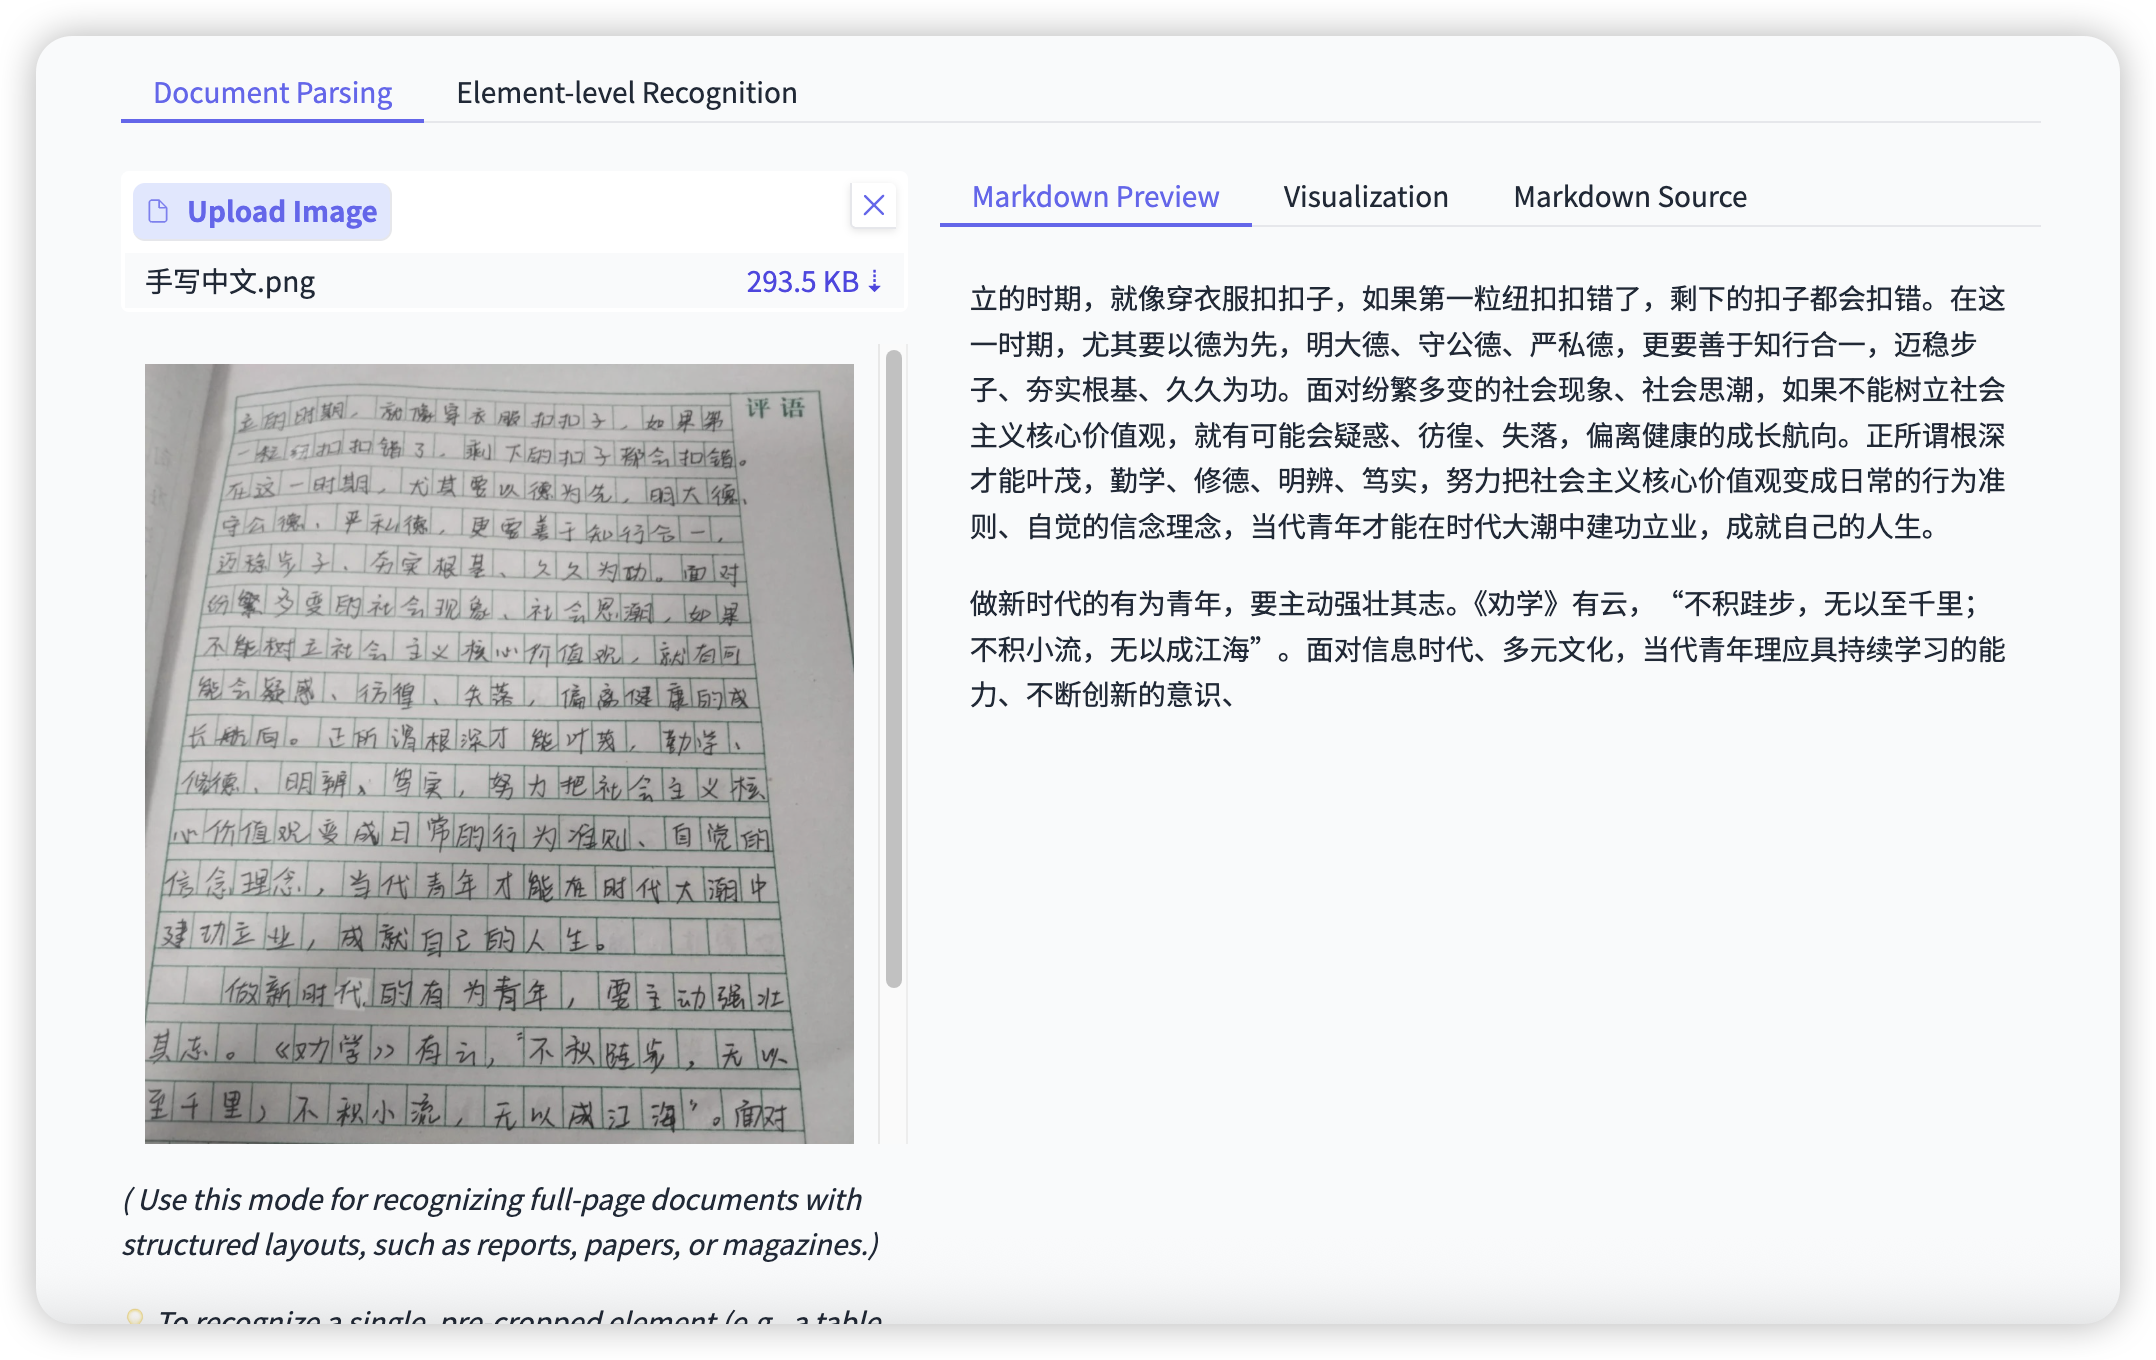 Document Parsing
Element-level Recognition
Upload Image
手写中文.png
293.5 KB
评语
立的时期，就像穿衣服扣扣子，如果第
一粒纽扣扣错了，剩下的扣子都会扣错。
在这一时期，尤其要以德为先，明大德、
守公德、严私德，更要善于知行合一，
迈稳步子、夯实根基、久久为功。面对
纷繁多变的社会现象、社会思潮，如果
不能树立社会主义核心价值观，就有可
能会疑惑、彷徨、失落，偏离健康的成
长航向。正所谓根深才能叶茂，勤学、
修德、明辨、笃实，努力把社会主义核
心价值观变成日常的行为准则、自觉的
信念理念，当代青年才能在时代大潮中
建功立业，成就自己的人生。
做新时代的有为青年，要主动强壮
其志。《劝学》有云，“不积跬步，无以
至千里；不积小流，无以成江海”。面对
(Use this mode for recognizing full-page documents with
structured layouts, such as reports, papers, or magazines.)
To recognize a single, pre-cropped element (e.g., a table
Markdown Preview
Visualization
Markdown Source
立的时期，就像穿衣服扣扣子，如果第一粒纽扣扣错了，剩下的扣子都会扣错。在这
一时期，尤其要以德为先，明大德、守公德、严私德，更要善于知行合一，迈稳步
子、夯实根基、久久为功。面对纷繁多变的社会现象、社会思潮，如果不能树立社会
主义核心价值观，就有可能会疑惑、彷徨、失落，偏离健康的成长航向。正所谓根深
才能叶茂，勤学、修德、明辨、笃实，努力把社会主义核心价值观变成日常的行为准
则、自觉的信念理念，当代青年才能在时代大潮中建功立业，成就自己的人生。
做新时代的有为青年，要主动强壮其志。《劝学》有云，“不积跬步，无以至千里；
不积小流，无以成江海”。面对信息时代、多元文化，当代青年理应具持续学习的能
力、不断创新的意识、